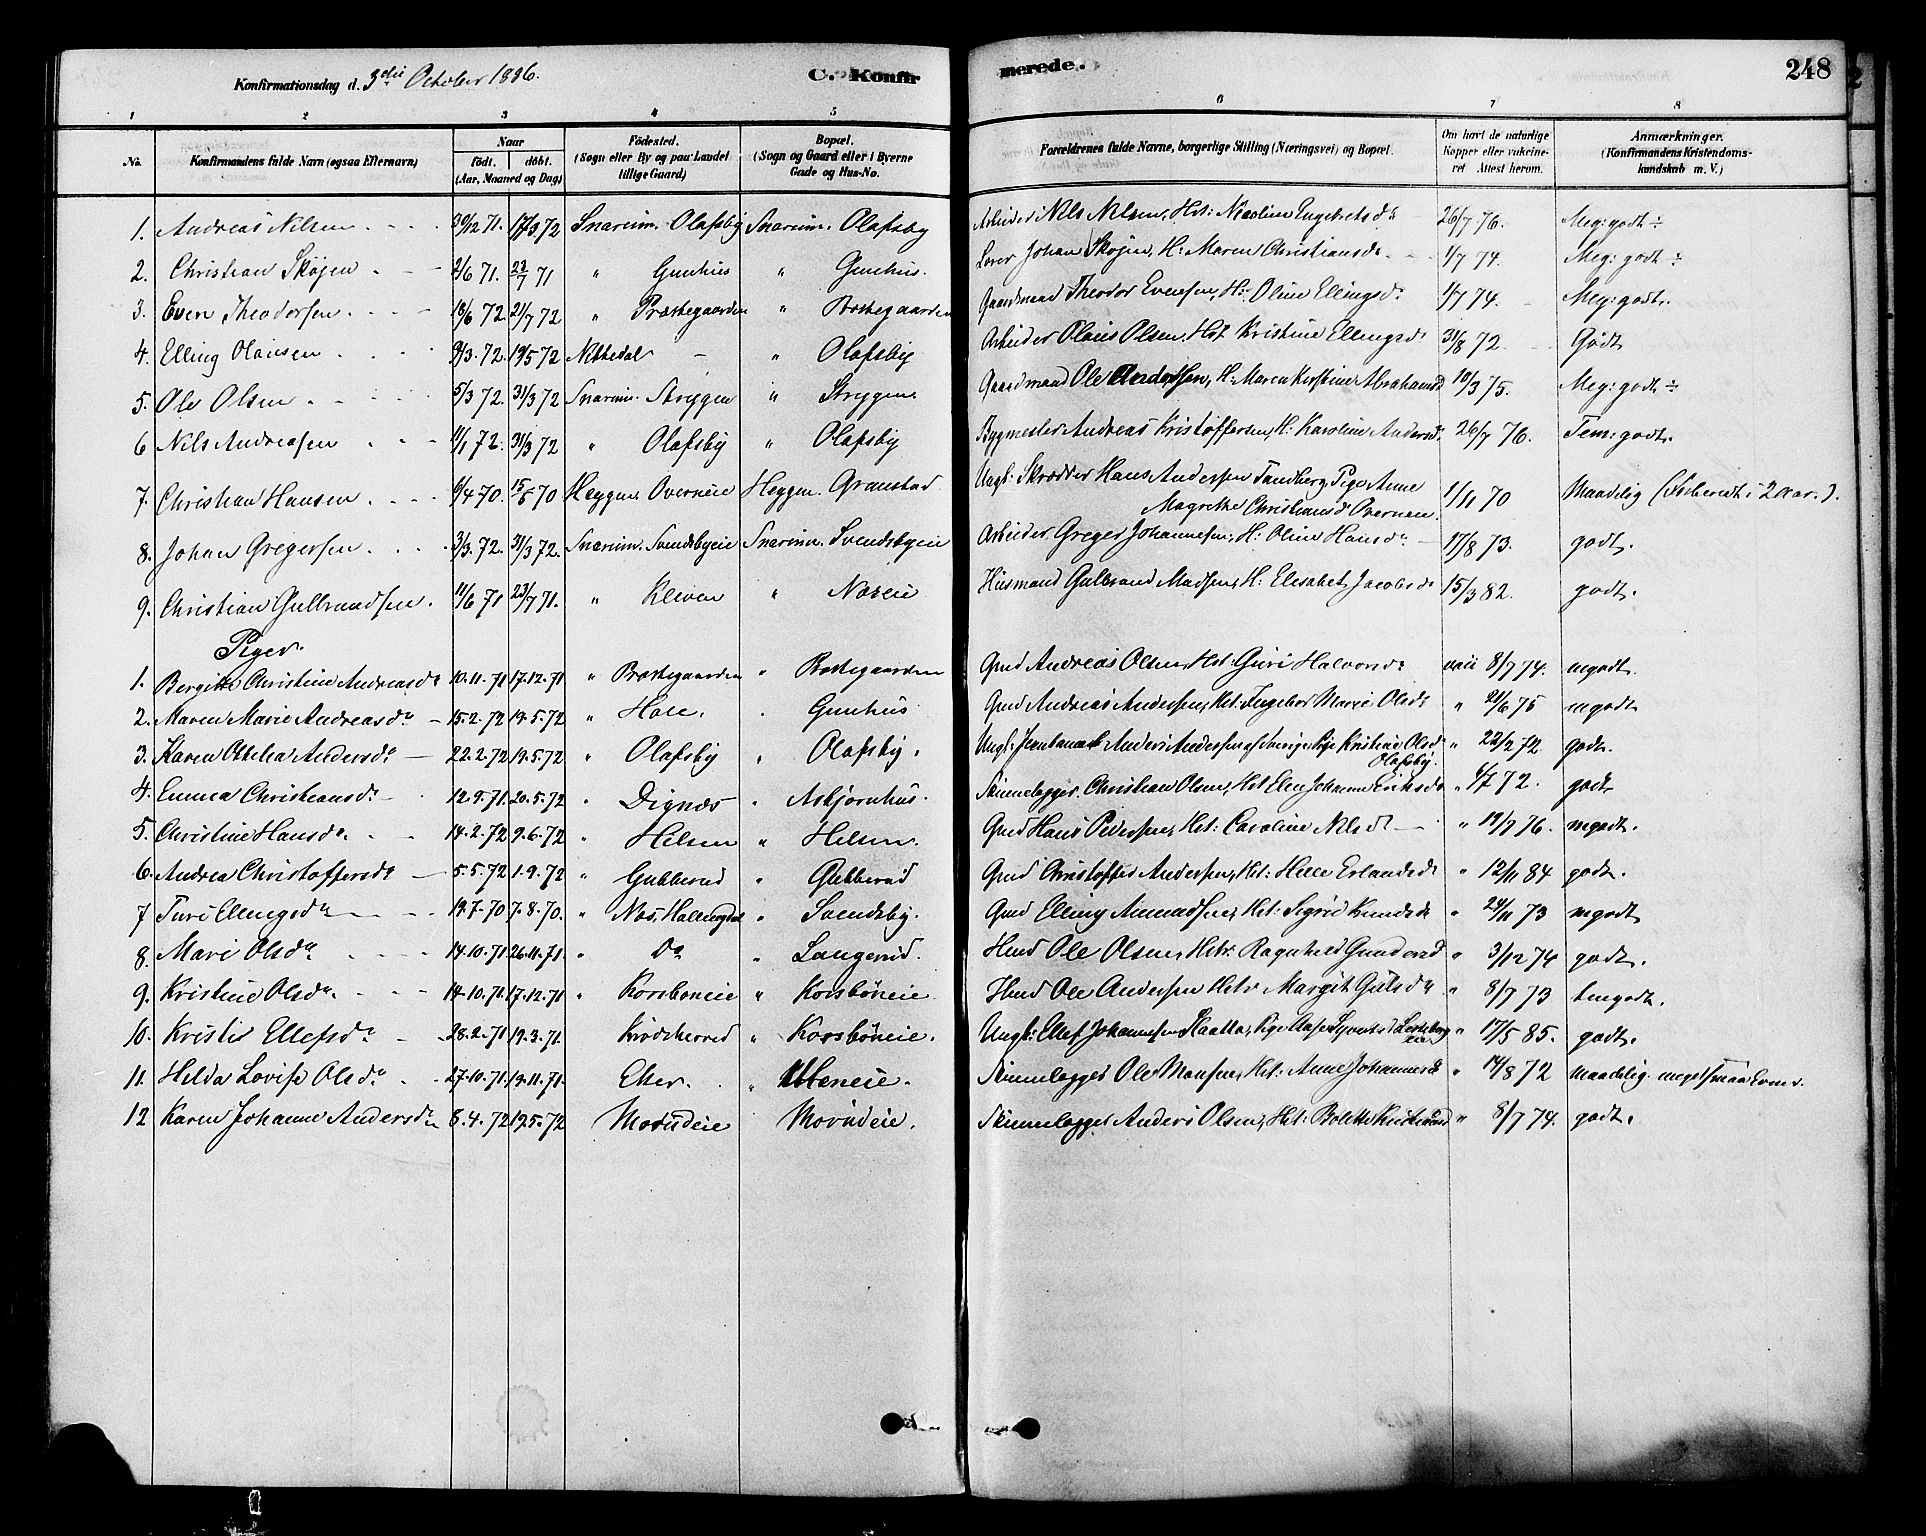 Konfirmationsdag d. 3die October 1886.
C. Konfir
merede.
248
1 2 3 4 5 6 7 8
No. Konfirmandens fulde Navn (ogsaa Efternavn)
Naar födt. döbt. (Aar, Maaned og Dag)
Födested. (Sogn eller By og paa Landet tillige Gaard)
Bopæl. (Sogn og Gaard eller i Byerne Gade og Hus-No.
Forældrenes fulde Navne, borgerlige Stilling (Næringsvei) og Bopæl.
Om havt de naturlige Kopper eller vakcineret. Attest herom.
Anmærkninger. (Konfirmandens Kristendomskundskab m. V.)
1. Andreas Nilsen 30/12 71. 17/3 72 Snarum. Olafsby Snarum. Olafsby Arbeider Nils Nilsen, Hst: Nicoline Engebretsdr 26/7 76. Meg: godt ÷
2. Christian Skøien 2/6 71. 23/7 71 " Gunhus " Gunhus. Lærer Johan Skøien, H: Maren Christiansdr 1/7 74. Meg: godt ÷
3. Even Theodorsen 18/6 72 21/7 72 " Præstegaarden " Præstegaarden Gaardmand Theodor Evensen, H: Oline Ellingsdr 1/7 74. Meg: godt.
4. Elling Olausen 9/3 72. 19/5 72 Nittedal " Olafsby Arbeider Olaus Olsen, Hst Kristine Ellingsdr 31/8 72. Godt
5. Ole Olsen 5/3 72. 31/3 72 Snarum. Strygen " Strygen. Gaardmand Ole Andersen, H: Maren Kirstine Abrahamsd 10/3 75. Meg: godt ÷
6 Nils Andreasen 11/1 72. 31/3 72 " Olafsby " Olafsby Bygmester Andreas Kristoffersen, H: Karoline Andersd. 26/7 76. Tem: godt.
7. Christian Hansen 6/4 70. 15/5 70 Heggen. Overneie Heggen. Granstad Ungk: Skrædder Hans Andersen Tandberg, Pige Anne
Magrethe Christiansdr Overneie. 1/11 70 Maadelig (forberedt i 2 aar.).
8. Johan Gregersen 3/3 72. 31/3 72. Snarum. Svendsbyeie Snarum. Svendsbyeie Arbeider Greger Johannesen, H: Oline Hansdr 17/8 73. godt.
9. Christian Gulbrandsen. 11/6 71 23/7 71. " Kleven " Næseie Husmand Gulbrand Madsen, H: Elisabet Jacobsdr 15/3 82. godt.
Piger.
1. Bergitte Christine Andreasdr 10.11.71 17.12.71 " Præstegaarden " Præstegaarden Gmd Andreas Olsen, Hst: Guri Halvorsdr vaci 8/7 74. mgodt.
2. Maren Marie Andreasdr 15.2.72 19.5.72 " Hole. " Gunhus Gmd Andreas Andersen, Hst: Ingebor Marie Olsdr " 21/6 75 mgodt
3. Karen Othelia Andersdr 22.2.72 19.5.72 " Olafsby " Olafsby. Ungk: Anders Andersen af Sverige, Pige Kristine Olsdr
Olafsby. " 22/2 72. godt.
4. Emma Christiansdr 12.9.71. 20.5.72 " Dignæs " Asbjørnhus. Skinnelægger Christian Olsen, Hst Elen Johanne Eriksdr " 6/7 72. godt
5. Christine Hansdr. 14.2.72 9.6.72 " Helsen " Helsen. Gmd Hans Pedersen, Hst: Caroline Nilsdr " 19/7 76. mgodt.
6. Andrea Christoffersdr 5.5.72 1.9.72 " Gubberud " Gubberud Gmd Christoffer Andersen, Hst: Helle Erlandsdr " 12/11 84 godt.
7 Turi Ellingsdr 19.7.70 7.8.70. " Næs, Hallingdal " Svendsby. Gmd Elling Amundsen, Hst: Sigrid Knudsdr " 24/11 73 mgodt
8. Mari Olsdr 14.10.71. 26.11.71. " Do " Langerud. Hmd Ole Olsen, Hstr. Ragnhild Gundersd " 3/12 74 godt.
9. Kristine Olsdr. 14.10.71. 17.12.71 " Korsbøneie " Korsbøneie Hmd Ole Andersen Hstr Margit Gulsdr " 8/7 73 temgodt.
10. Kristi Ellefsdr 28.2.71 19.3.71. Krødsherred " Korsbøneie. Ungk: Ellef Johannesen Slaatta, Pige Aase " 17/5 85. godt.
11. Hilda Lovise Olsdr 27.10.71. 19.11.71. Eker. " Ubeneie. Skinnelægger Ole Monsen, Hst: Anne Johannesd " 14/8 72 maadelig. meget smaa Evner.
12 Karen Johanne Andersdr 8.4.72 19.5.72 Morudeie Morudeie. Skinnelægger Anders Olsen, Hst: Bolette Kristiansd " 8/7 74. godt.